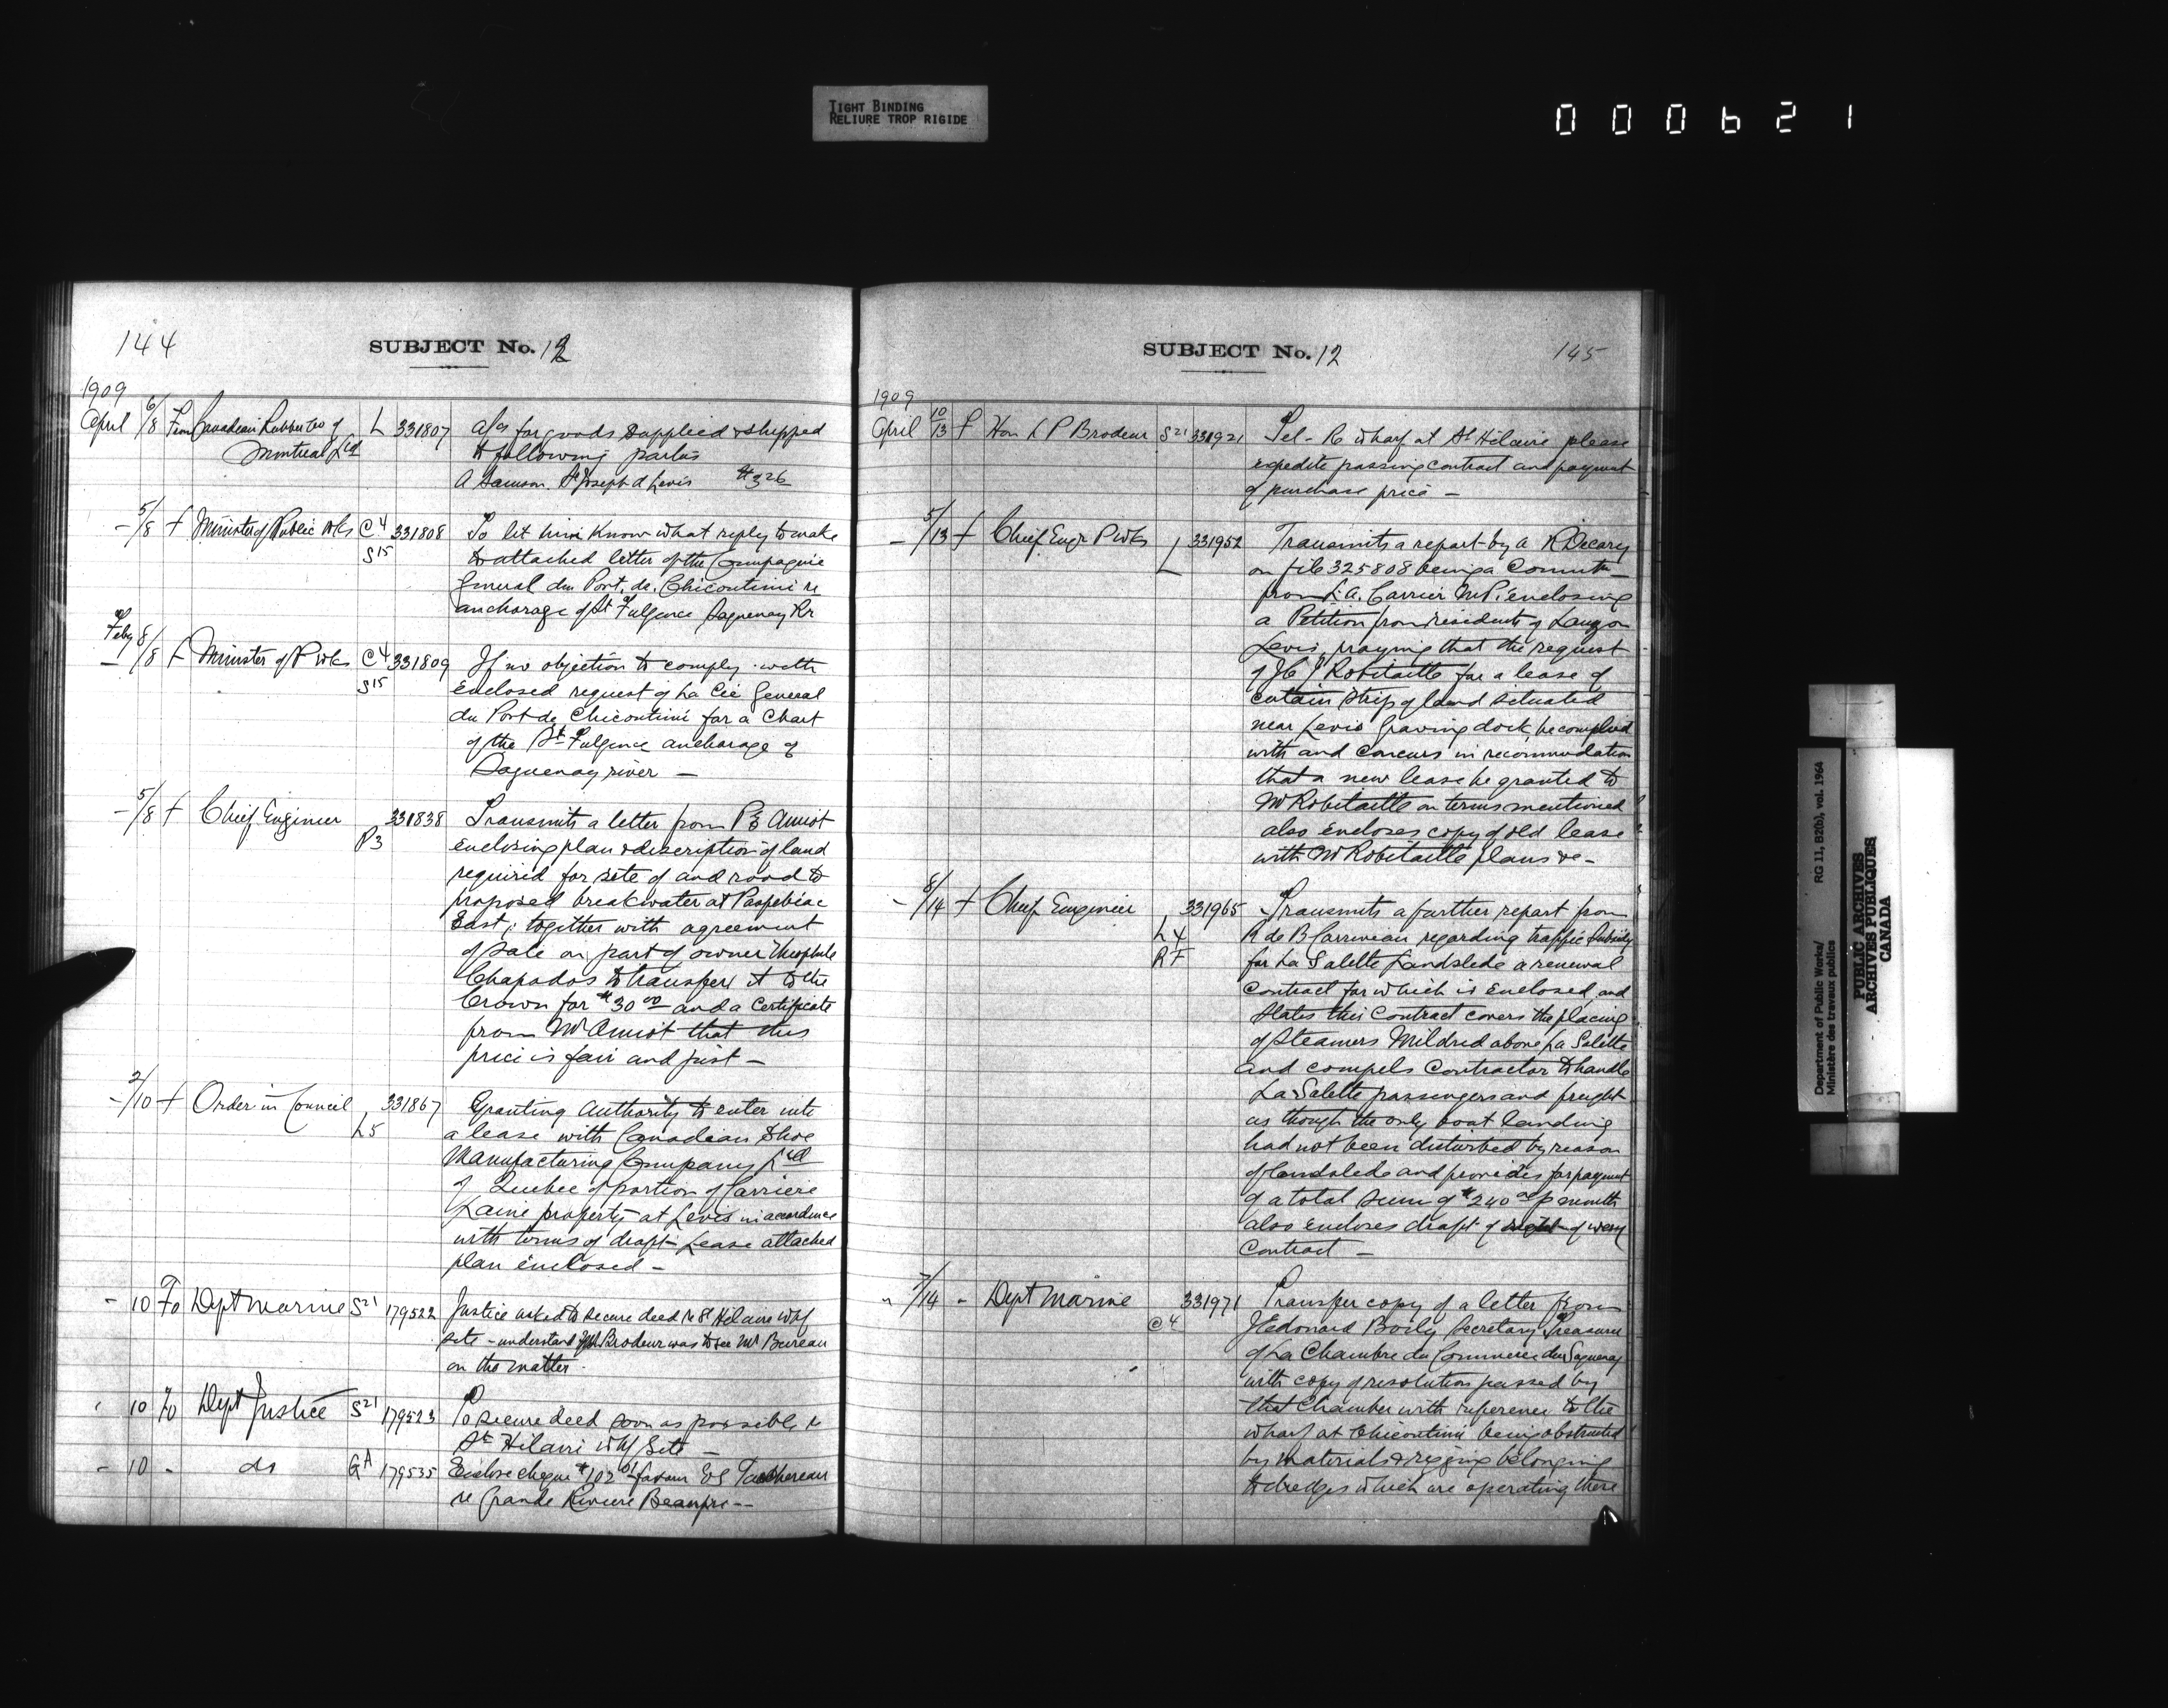 TIGHT BINDING
RELIURE TROP RIGIDE
000621
144
SUBJECT No. 12
1909
April 6/8 From Canadian Rubber Co of L 331807 a/cs for goods supplied & shipped
Montreal Ltd to following parties
A Samson St Joseph d Levis $3 26
- 5/8 f Minister of Public Wks C4 331808 To let him know what reply to make
S15 to attached letter of the Compagnie
General du Port. de. Chicoutimi re
anchorage of St Fulgence Saguenay Rr
Feby 8/8 f Minister of P Wks C4 331809 If no objection to comply with
S15 enclosed request of La Cie General
du Port de Chicoutimi for a Chart
of the St Fulgence anchorage of
Saguenay river -
- 5/8 f Chief Engineer 331838 Transmits a letter from P E Amiot
P3 enclosing plan & description of land
required for site of and road to
proposed breakwater at Paspebiac
East, together with agreement
of sale on part of owner Theophile
Chapados to transfer it to the
Crown for $30 00 and a Certificate
from Mr Amiot that this
price is fair and just -
- 2/10 f Order in Council 331867 Granting Authority to enter into
L5 a lease with Canadian Shoe
Manufacturing Company Ltd
of Quebec of portion of Carriere
Laine property at Levis in accordance
with terms of draft Lease attached
plan enclosed -
- 10 To Dept Marine S21 179522 Justice asked to secure deed re St Hilaire Whf
site - understand Mr Brodeur was to see Mr Bureau
on the matter.
" 10 To Dept Justice S21 179523 To secure deed soon as possible re
St Hilaire Whf Site -
- 10 - do GA 179535 Enclose cheque $102 01 favour E G Taschereau
re Grande Riviere Beaupre --
145
SUBJECT No. 12
1909
April 10/13 f Hon L P Brodeur S21 331921 Tel - Re wharf at St Hilaire please
expedite passing contract and payment
of purchase price -
- 5/13 f Chief Engr P Wks L 331952 Transmits a report by A R Decary
on file 325808 being a Commtn
from L. A. Carrier M.P. enclosing
a Petition from residents of Lauzon
Levis, praying that the request
of J C J Robitaille for a lease of
certain strip of land situated
near Levis Graving dock, be complied
with and concurs in recommendation
that a new lease be granted to
Mr Robitaille on terms mentioned
also encloses copy of old lease
with Mr Robitaille plans &c -
- 8/14 f Chief Engineer 331965 Transmits a further report from
L4 R de B Corriveau regarding traffic Subsidy
RF for La Salette Landslide a renewal
Contract for which is enclosed, and
States this Contract covers the placing
of Steamers Mildred above La Salette
and compels Contractor to handle
La Salette passengers and freight
as though the only boat landing
had not been disturbed by reason
of landslide and provides for payment
of a total sum of $240 00 p month
also encloses draft of
Contract -
" 7/14 - Dept Marine 331971 Transfer copy of a letter from
C4 J Edouard Boily Secretary Treasurer
of La Chambre du Commerce du Saguenay
with copy of resolution passed by
that Chamber with reference to the
wharf at Chicoutimi being obstructed
by materials & rigging belonging
to dredges which are operating there
Department of Public Works/
Ministère des travaux publics
RG 11, B2(b), vol. 1964
PUBLIC ARCHIVES
ARCHIVES PUBLIQUES
CANADA